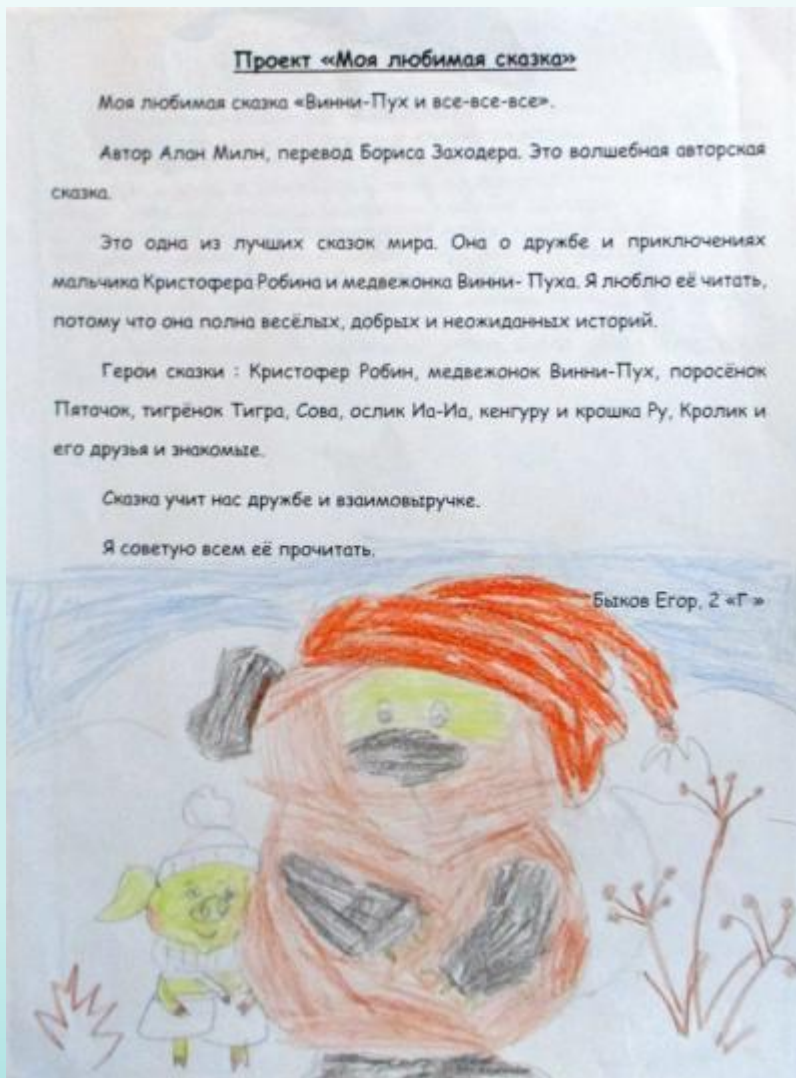 Проект «Моя любимая сказка»
Моя любимая сказка «Винни-Пух и все-все-все».
Автор Алан Милн, перевод Бориса Заходера. Это волшебная авторская
сказка.
Это одна из лучших сказок мира. Она о дружбе и приключениях
мальчика Кристофера Робина и медвежонка Винни- Пуха. Я люблю её читать,
потому что она полна весёлых, добрых и неожиданных историй.
Герои сказки : Кристофер Робин, медвежонок Винни-Пух, поросёнок
Пятачок, тигрёнок Тигра, Сова, ослик Иа-Иа, кенгуру и крошка Ру, Кролик и
его друзья и знакомые.
Сказка учит нас дружбе и взаимовыручке.
Я советую всем её прочитать.
Быков Егор, 2 «Г »